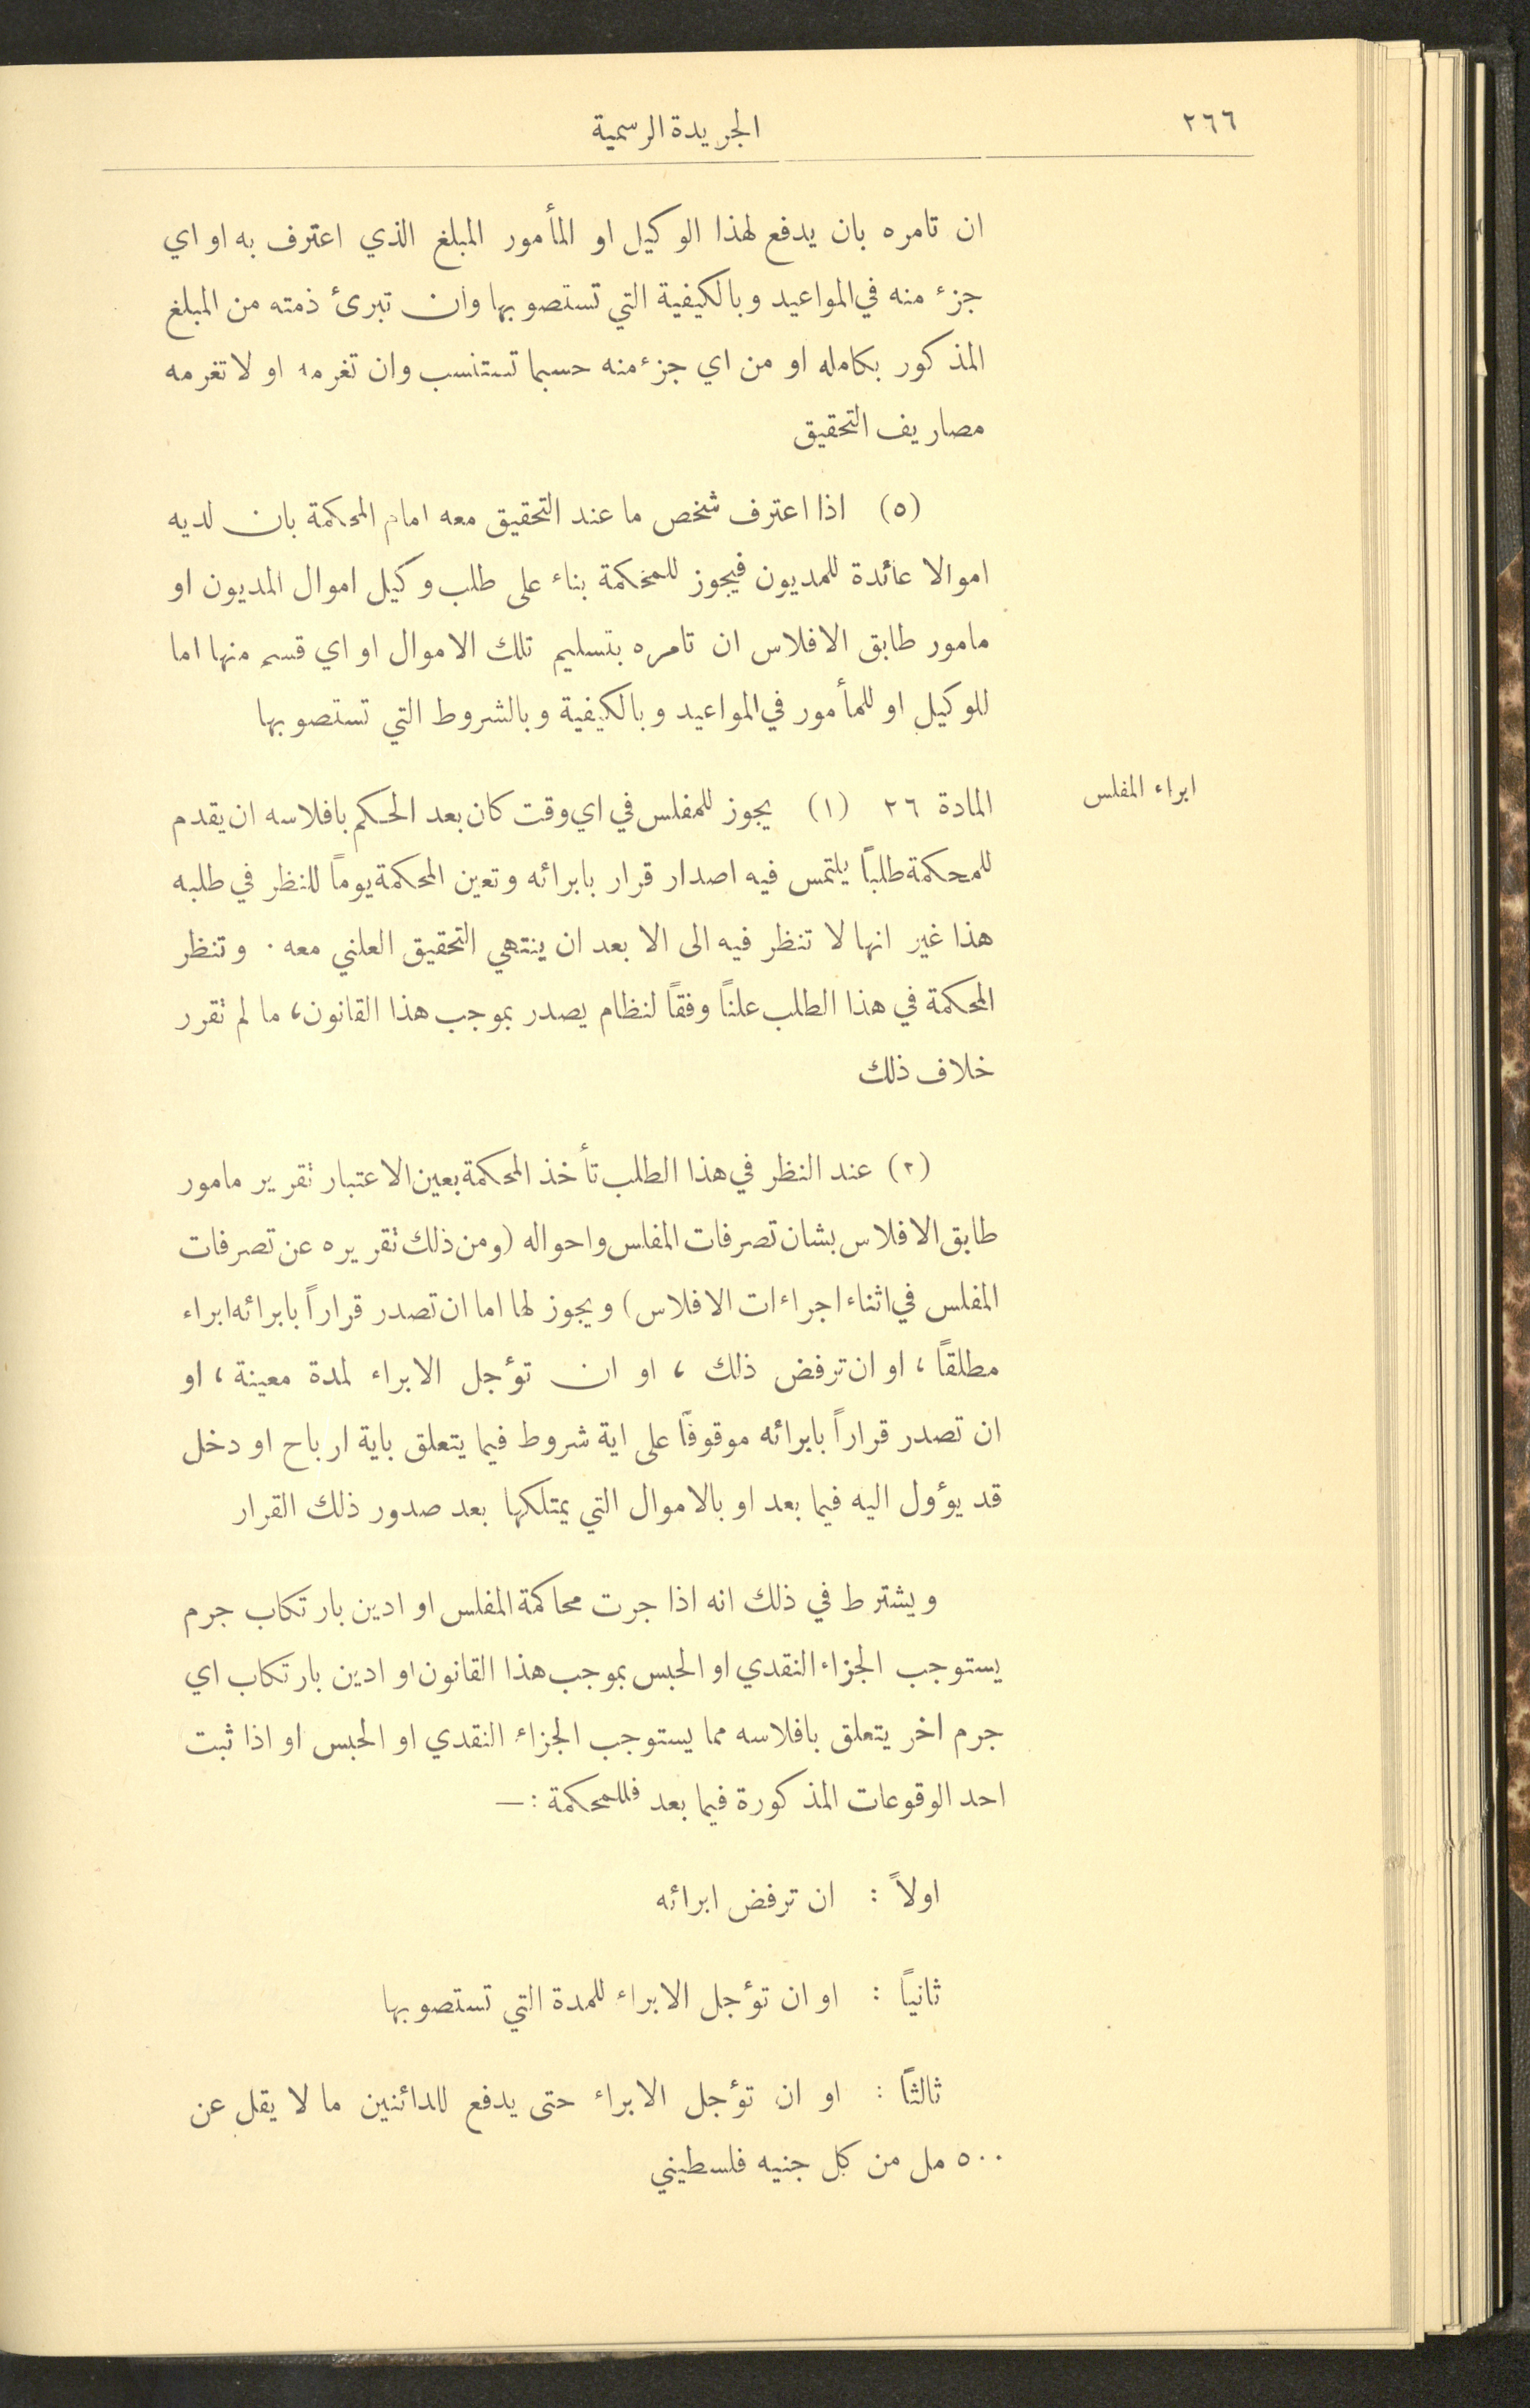 ٢٦٦
الجريدة الرسمية
ان تامره بان يدفع لهذا الوكيل او المأمور المبلغ الذي اعترف به او اي
جزء منه في المواعيد وبالكيفية التي تستصوبها وان تبرئ ذمته من المبلغ
المذكور بكامله او من اي جزء منه حسبما تستنسب وان تغرمه او لا تغرمه
مصاريف التحقيق
(٥) اذا اعترف شخص ما عند التحقيق معه امام المحكمة بان لديه
اموالا عائدة للمديون فيجوز للمحكمة بناء على طلب وكيل اموال المديون او
مامور طابق الافلاس ان تامره بتسليم تلك الاموال او اي قسم منها اما
للوكيل او للمأمور في المواعيد وبالكيفية وبالشروط التي تستصوبها
ابراء المفلس
المادة ٢٦ (١) يجوز للمفلس في اي وقت كان بعد الحكم بافلاسه ان يقدم
للمحكمة طلباً يلتمس فيه اصدار قرار بابرائه وتعين المحكمة يوماً للنظر في طلبه
هذا غير انها لا تنظر فيه الى الا بعد ان ينتهي التحقيق العلني معه . وتنظر
المحكمة في هذا الطلب علناً وفقاً لنظام يصدر بموجب هذا القانون، ما لم تقرر
خلاف ذلك
(٢) عند النظر في هذا الطلب تأخذ المحكمة بعين الاعتبار تقرير مامور
طابق الافلاس بشان تصرفات المفلس واحواله (ومن ذلك تقريره عن تصرفات
المفلس في اثناء اجراءات الافلاس) ويجوز لها اما ان تصدر قراراً بابرائه ابراء
مطلقاً ، او ان ترفض ذلك ، او ان تؤجل الابراء لمدة معينة ، او
ان تصدر قراراً بابرائه موقوفاً على اية شروط فيما يتعلق باية ارباح او دخل
قد يوؤل اليه فيما بعد او بالاموال التي يمتلكها بعد صدور ذلك القرار
ويشترط في ذلك انه اذا جرت محاكمة المفلس او ادين بارتكاب جرم
يستوجب الجزاء النقدي او الحبس بموجب هذا القانون او ادين بارتكاب اي
جرم اخر يتعلق بافلاسه مما يستوجب الجزاء النقدي او الحبس او اذا ثبت
احد الوقوعات المذكورة فيما بعد فللمحكمة :—
اولاً : ان ترفض ابرائه
ثانياً : او ان تؤجل الابراء للمدة التي تستصوبها
ثالثاً : او ان تؤجل الابراء حتى يدفع للدائنين ما لا يقل عن
٥٠٠ مل من كل جنيه فلسطيني